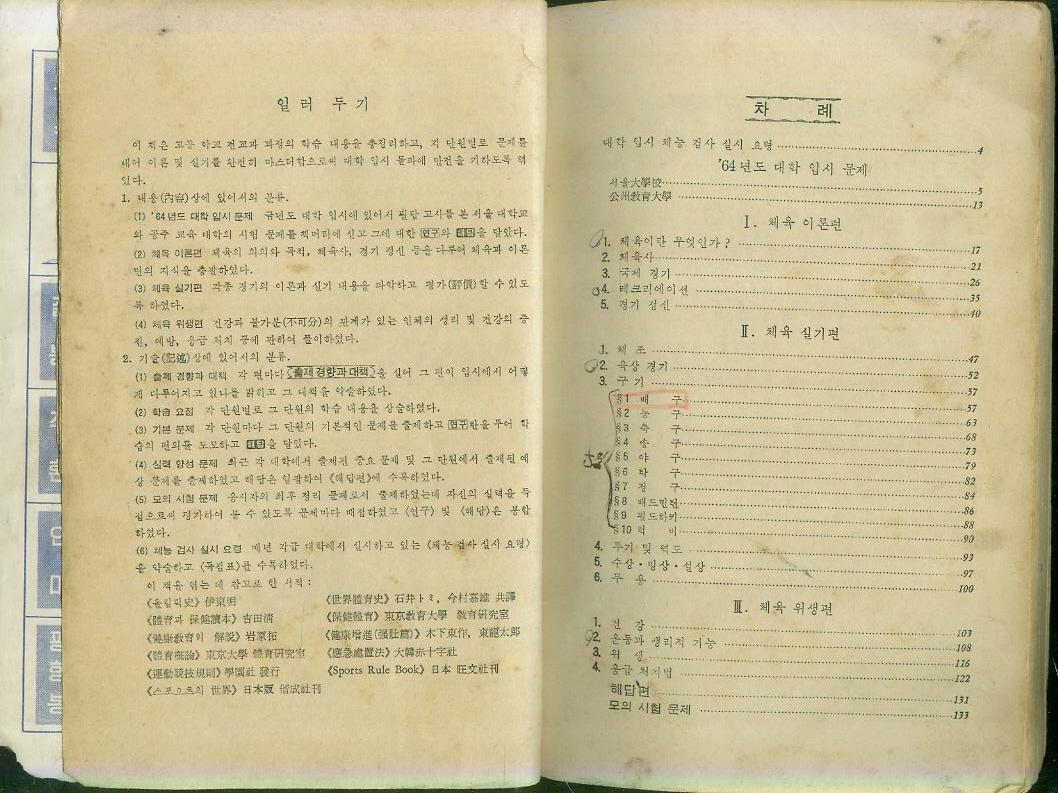 일 러 두 기
이 책은 고등 학교 전교과 과정의 학습 내용을 총정리하고, 각 단원별로 문제를
내어 이론 및 실기를 완전히 마스터함으로써 대학 입시 돌파에 만전을 기하도록 엮
었다.
1. 내용(內容)상에 있어서의 분류.
(1) '64년도 대학 입시 문제 금년도 대학 입시에 있어서 필답 고사를 본 서울 대학교
와 공주 교육 대학의 시험 문제를 책머리에 싣고 그에 대한 연구와 해답을 달았다.
(2) 체육 이론편 체육의 의의와 목적, 체육사, 경기 정신 등을 다루어 체육과 이론
면의 지식을 총괄하였다.
(3) 체육 실기편 각종 경기의 이론과 실기 내용을 파악하고 평가(評價)할 수 있도
록 하였다.
(4) 체육 위생편 건강과 불가분(不可分)의 관계가 있는 인체의 생리 및 건강의 증
진, 예방, 응급 처치 등에 관하여 풀이하였다.
2. 기술(記述)상에 있어서의 분류.
(1) 출제 경향과 대책 각 편마다 《출제 경향과 대책》을 실어 그 편이 입시에서 어떻
게 다루어지고 있나를 밝히고 그 대책을 약술하였다.
(2) 학습 요점 각 단원별로 그 단원의 학습 내용을 상술하였다.
(3) 기본 문제 각 단원마다 그 단원의 기본적인 문제를 출제하고 연구란을 두어 학
습의 편의를 도모하고 해답을 달았다.
(4) 실력 양성 문제 최근 각 대학에서 출제된 중요 문제 및 그 단원에서 출제될 예
상 문제를 출제하였고 해답은 일괄하여 《해답편》에 수록하였다.
(5) 모의 시험 문제 응시자의 최후 정리 문제로서 출제하였는데 자신의 실력을 득
점으로써 평가하여 볼 수 있도록 문제마다 배점하였고 《연구》 및 《해답》은 봉합
하였다.
(6) 체능 검사 실시 요령 매년 각급 대학에서 실시하고 있는 《체능 검사 실시 요령》
을 약술하고 《득점표》를 수록하였다.
이 책을 엮는 데 참고로 한 서적:
《올림픽史》 伊東明
《世界體育史》 石井トミ, 今村嘉雄 共譯
《體育과 保健讀本》 吉田淸
《保健體育》 東京教育大學 敎育研究室
《健康教育의 解說》 岩原拓
《健康增進(强壯篇)》 木下東作, 東龍太郎
《體育槪論》 東京大學 體育研究室
《應急處置法》 大韓赤十字社
《運動競技規則》 學園社 發行
《Sports Rule Book》 日本 旺文社刊
《스포오츠의 世界》 日本版 偕成社刊
차 례
대학 입시 체능 검사 실시 요령 4
'64년도 대학 입시 문제
서울大學校 5
公州敎育大學 13
Ⅰ. 체육 이론편
1. 체육이란 무엇인가? 17
2. 체육사 21
3. 국제 경기 26
4. 레크리에이션 35
5. 경기 정신 40
Ⅱ. 체육 실기편
1. 체 조 47
2. 육상 경기 52
3. 구 기 57
§1 배 구 57
§2 농 구 63
§3 축 구 68
§4 송 구 73
§5 야 구 79
§6 탁 구 82
§7 정 구 84
§8 배드민턴 86
§9 필드하키 88
§10 럭 비 90
4. 투기 및 역도 93
5. 수상·빙상·설상 97
6. 무 용 100
Ⅲ. 체육 위생편
1. 건 강 103
2. 운동과 생리적 기능 108
3. 위 생 116
4. 응급 처치법 122
해답편 131
모의 시험 문제 133